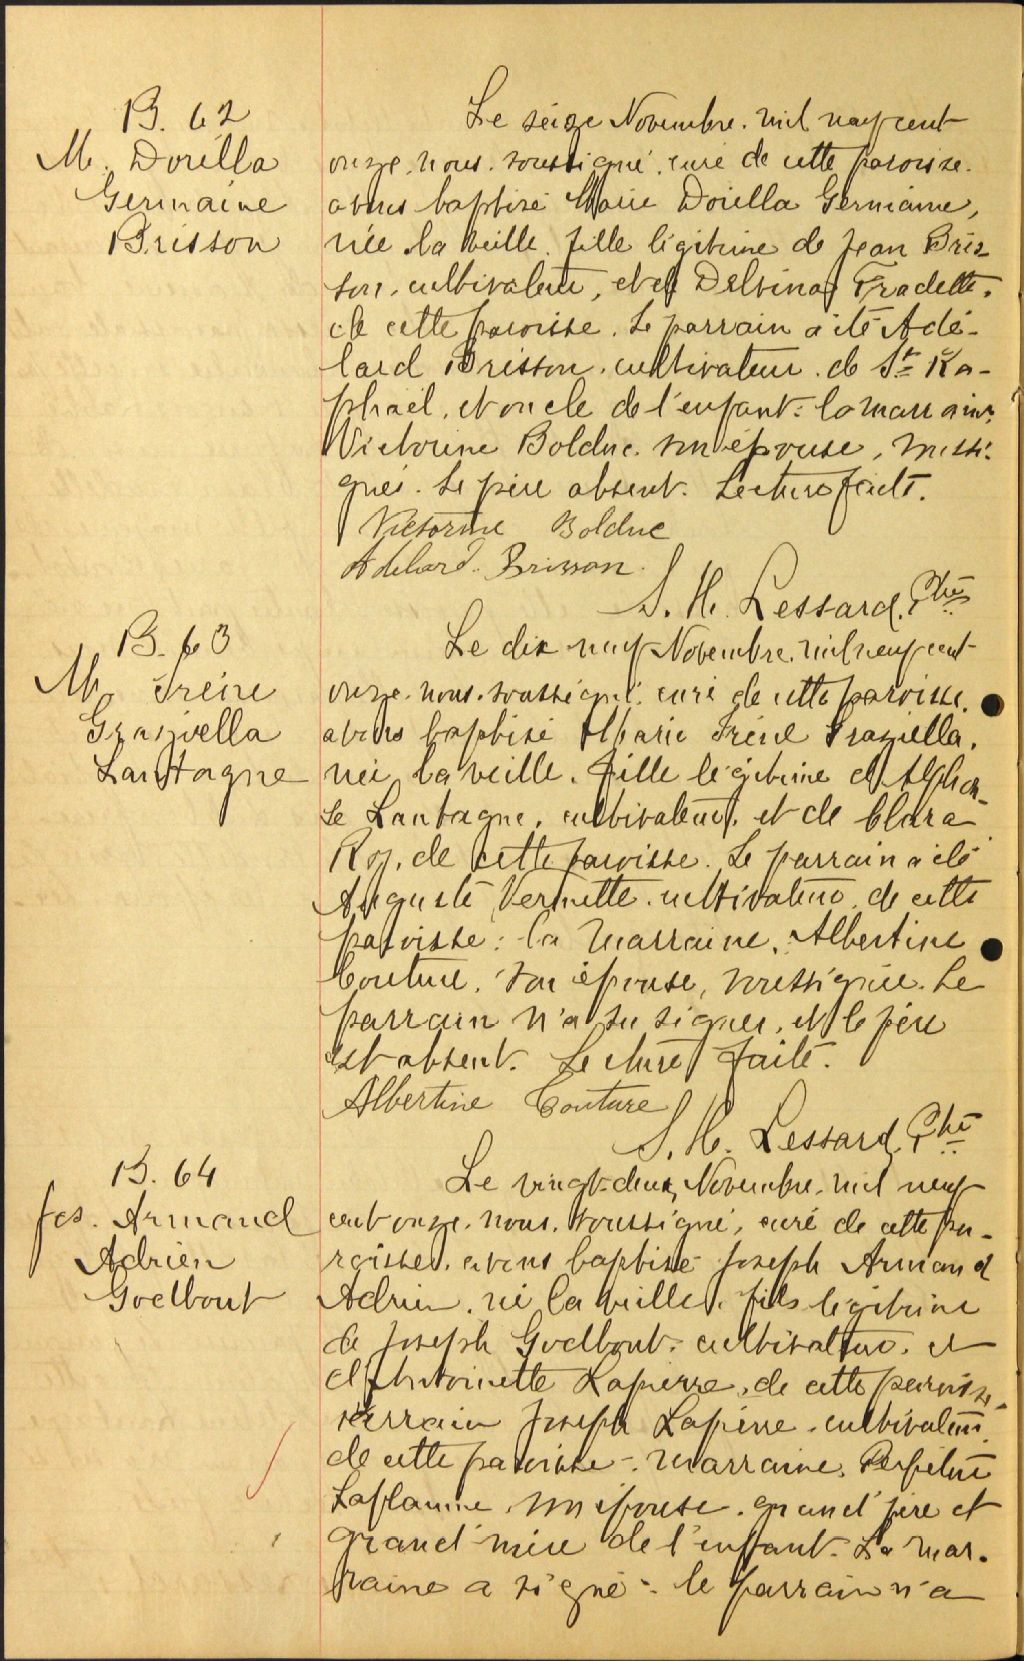 B. 62
M. Dorilla
Germaine
Brisson
Le seize Novembre. mil neuf cent
onze. nous. soussigné. curé de cette paroisse.
avons baptisé Marie Dorilla Germaine,
née la veille. fille légitime de Jean Bris-
son. cultivateur, et de Delvina Fradette.
de cette paroisse. Le parrain a été Adé-
lard Brisson. cultivateur. de St Ra-
phaël. et oncle de l'enfant: la marraine
Victorine Bolduc. son épouse, soussi-
gnés. Le père absent. Lecture faite.
Victorine Bolduc
Adelard. Brisson.
S. H. Lessard. Ptre
B. 63
M. Irène
Graziella
Lantagne
Le dix neuf Novembre. mil neuf cent
onze. nous. soussigné. curé de cette paroisse.
avons baptisé Marie Irène Graziella.
née la veille. fille légitime d'Alphon-
se Lantagne. cultivateur. et de Clara
Roy. de cette paroisse. Le parrain a été
Auguste Vermette. cultivateur. de cette
paroisse: la marraine. Albertine
Couture. son épouse, soussignée. Le
parrain n'a su signer. et le père
est absent. Lecture faite.
Albertine Couture
S. H. Lessard, Ptre
B. 64
Jos. Armand
Adrien
Godbout
Le vingt-deux Novembre. mil neuf
cent onze. nous. soussigné, curé de cette pa-
roisse. avons baptisé Joseph Armand
Adrien. né la veille. fils légitime
de Joseph Godbout. cultivateur. et
d'Antoinette Lapierre. de cette paroisse.
Parrain Joseph Lapierre. cultivateur.
de cette paroisse - marraine. Perpétue
Laflamme son épouse. grand'père et
grand'mère de l'enfant. La mar-
raine a signé - le parrain n'a